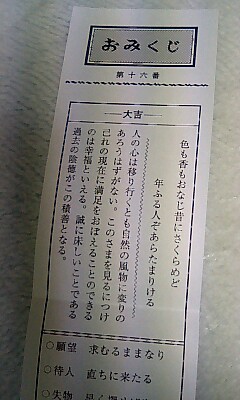 おみくじ
第十六番
大吉
色も香もおなじ昔にさくらめど
年ふる人ぞあらたまりける
人の心は移り行くとも自然の風物に変りの
あろうはずがない。このさまを見るにつけ
己れの現在に満足をおぼえることのできる
のは幸福といえる。誠に床しいことである
過去の陰徳がこの積善となる。
○願望 求むるままなり
○待人 直ちに来たる
○失物